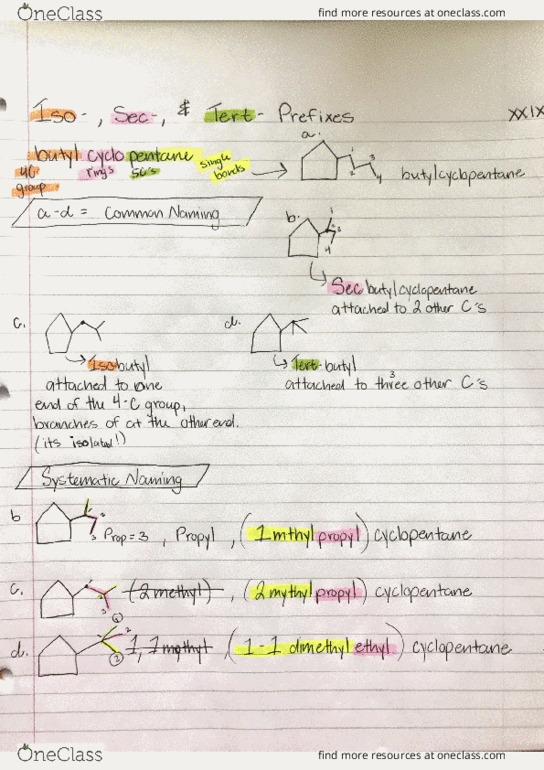 OneClass
find more resources at oneclass.com
Iso-, Sec-, & Tert- Prefixes
XXIX
a.
butyl cyclo pentane
single bonds
4C group
rings
5C's
1
2
3
4
butylcyclopentane
a-d = Common Naming
b.
1
2
3
4
Sec butylcyclopentane
attached to 2 other C's
c.
d.
Isobutyl
Tert-butyl
attached to one
attached to three other C's
3
end of the 4-C group,
branches of at the other end.
(its isolated!)
Systematic Naming
b
Prop=3, Propyl, (1mthylpropyl) cyclopentane
c.
(2methyl), (2mythylpropyl) cyclopentane
d.
1, 1 mythyl (1-1 dimethyl ethyl) cyclopentane
OneClass
find more resources at oneclass.com